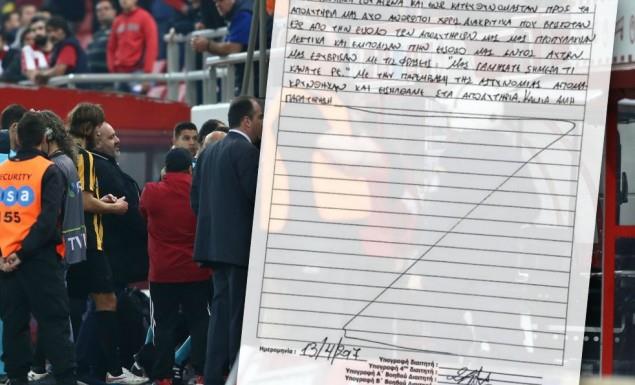 ΑΠΟΔΥΤΗΡΙΑ ΜΑΣ ΔΥΟ ΑΝΘΡΩΠΟΙ ΧΩΡΙΣ ΔΙΑΚΡΙΤΙΚΑ ΠΟΥ ΒΡΙΣΚΟΤΑΝ
ΕΞΩ ΑΠΟ ΤΗΝ ΕΙΣΟΔΟ ΤΩΝ ΑΠΟΔΥΤΗΡΙΩΝ ΜΑΣ ΜΑΣ
ΛΕΚΤΙΚΑ ΚΑΙ ΕΜΠΟΔΙΣΑΝ ΤΗΝ ΕΙΣΟΔΟ ΜΑΣ ΕΝΤΟΣ ΑΥΤΩΝ
ΜΑΣ ΕΞΥΒΡΙΣΑΝ ΜΕ ΤΙΣ ΦΡΑΣΕΙΣ: "ΜΑΣ ΓΑΜΗΣΑΤΕ ΣΗΜΕΡΑ ΤΙ
ΚΑΝΑΤΕ ΡΕ" ΜΕ ΤΗΝ ΠΑΡΕΜΒΑΣΗ ΤΗΣ ΑΣΤΥΝΟΜΙΑΣ ΑΠΟΜΑ
ΚΡΥΝΘΗΚΑΝ ΚΑΙ ΕΙΣΗΛΘΑΜΕ ΣΤΑ ΑΠΟΔΥΤΗΡΙΑ. ΚΑΜΙΑ ΑΛΛΗ
ΠΑΡΑΤΗΡΗΣΗ
Ημερομηνία : 13/4/2017
Υπογραφή Διαιτητή :
Υπογραφή 4ου Διαιτητή :
Υπογραφή Α΄ Βοηθού Διαιτητή :
Υπογραφή Β΄ Βοηθού Διαιτητή :
SECURITY
55
TV